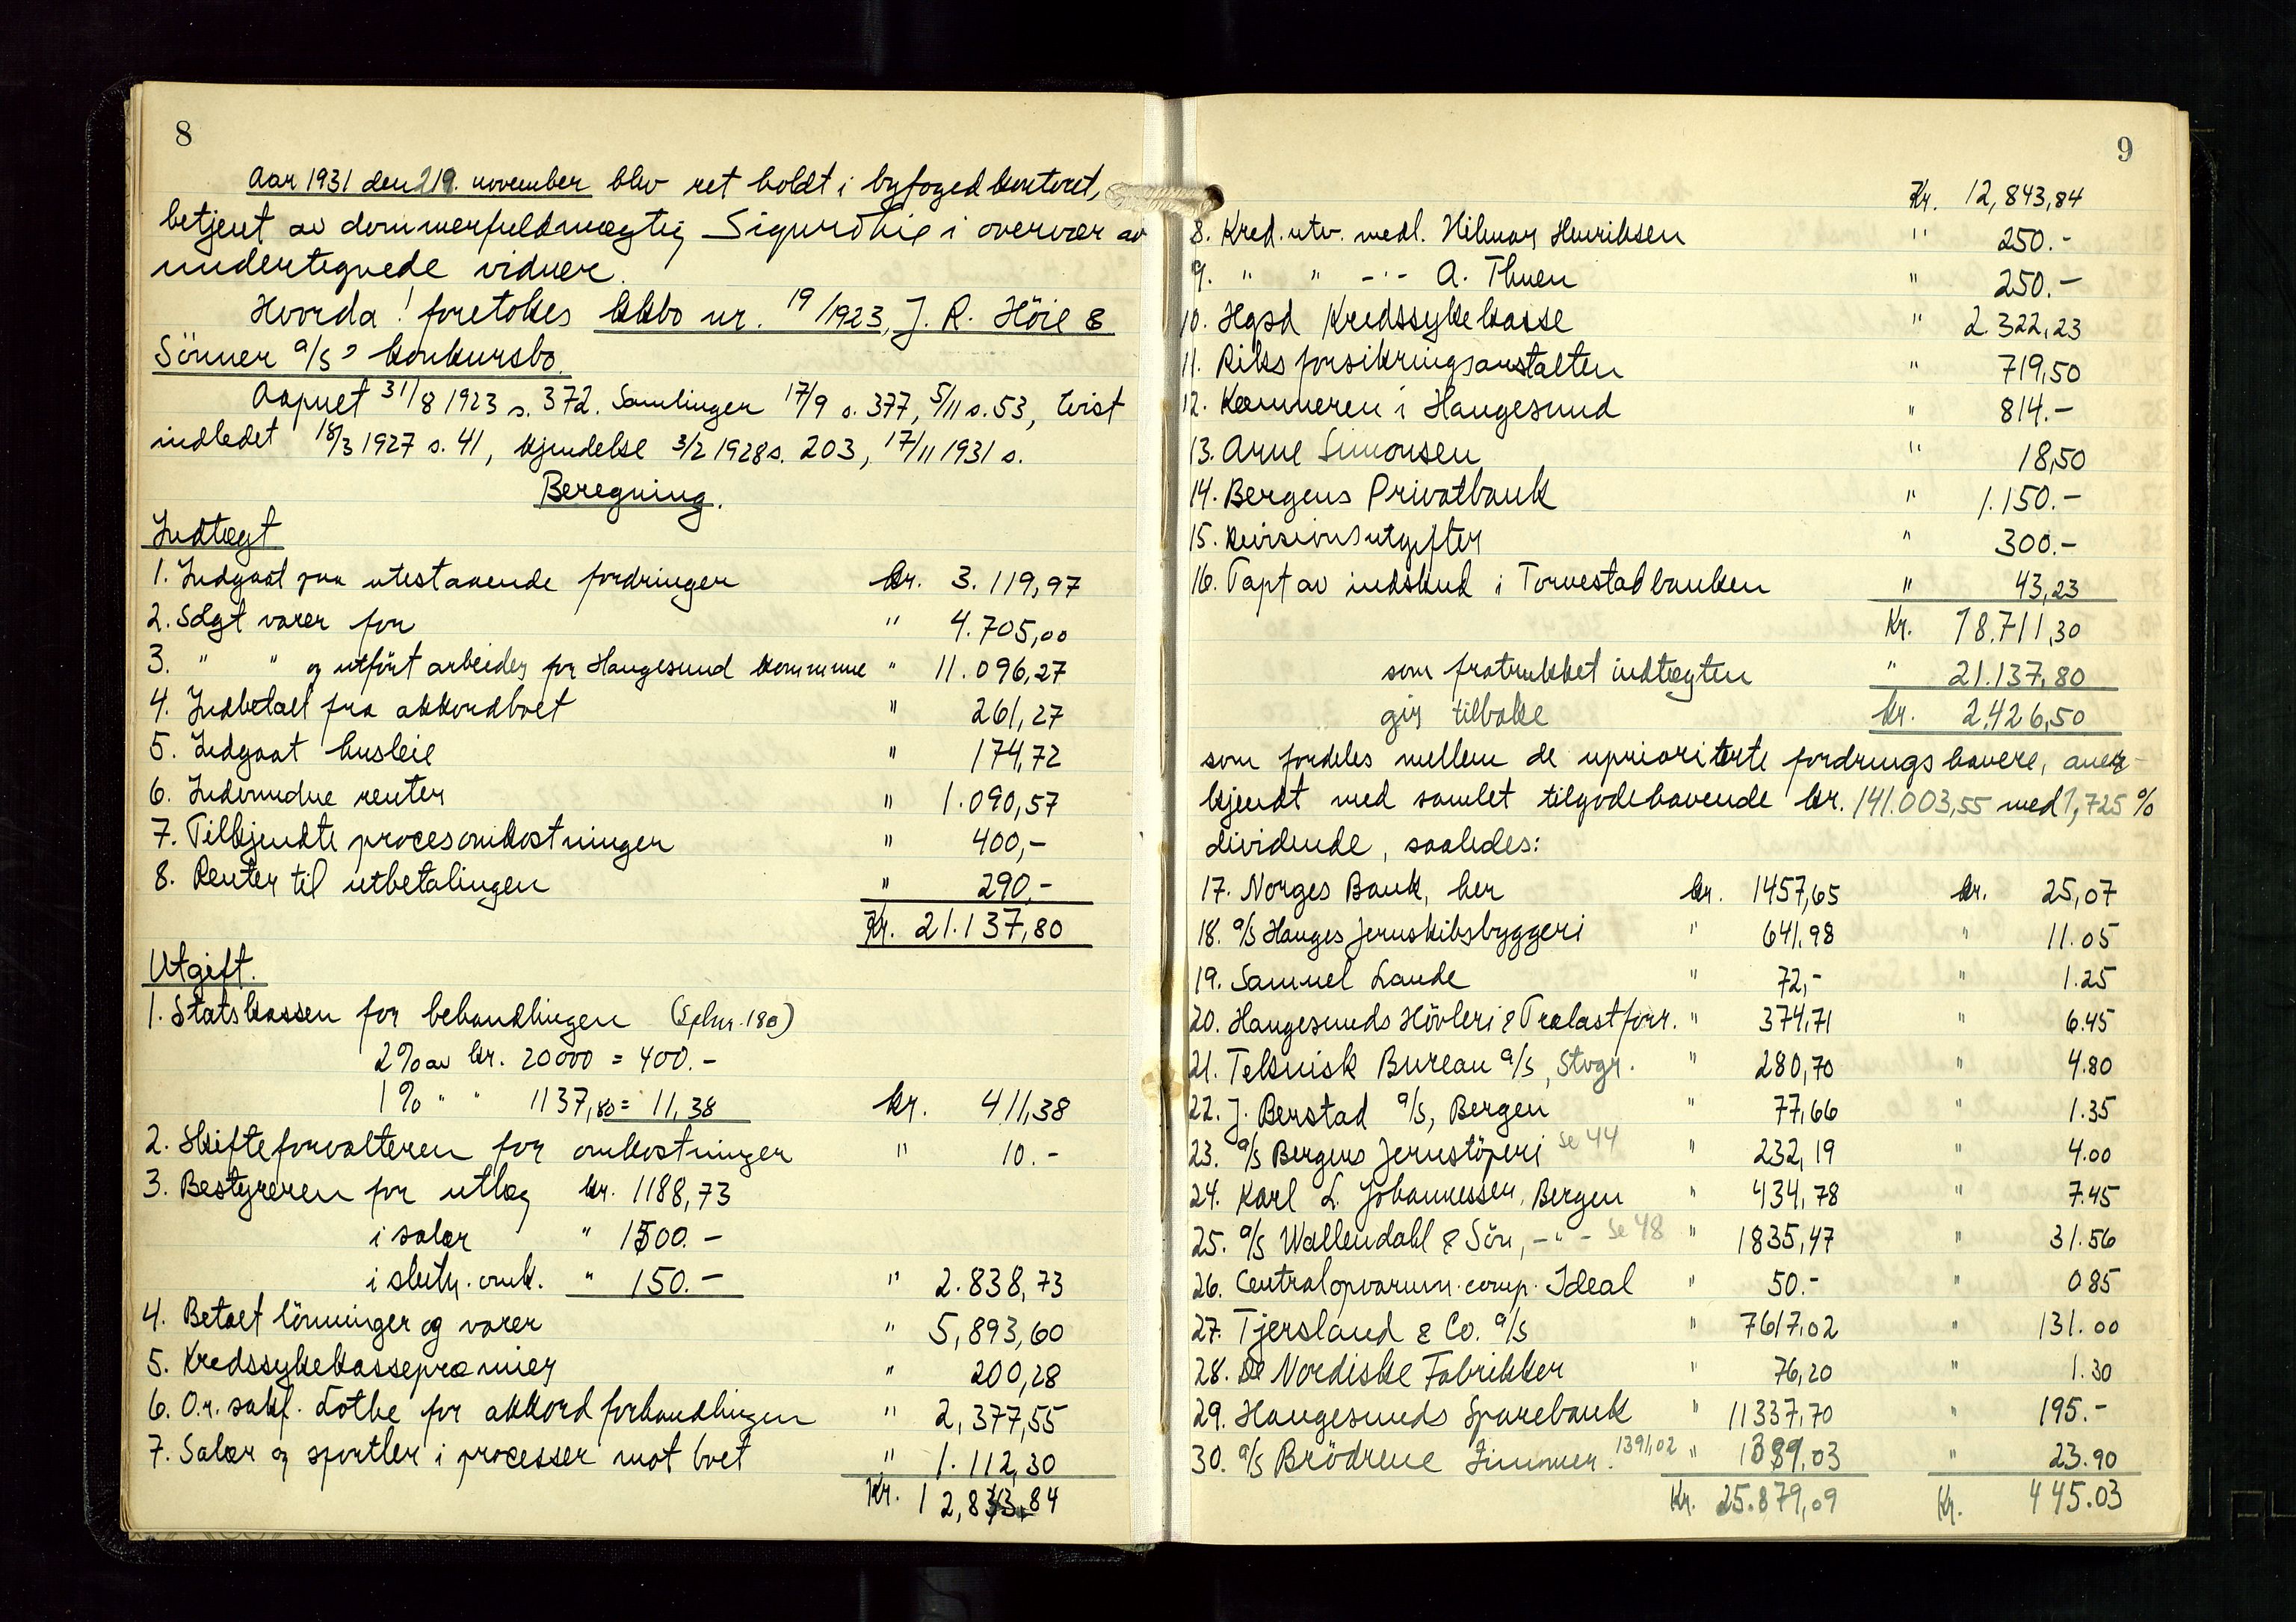 8
Aar 1931 den 219. november blev ret holdt i byfogedkontoret,
betjent av dommerfuldmægtig Sigurd Lie i overvær av
undertegnede vidner.
Hvorda! foretokes kkbo nr. 19/1923, J. R. Höie &
Sönner a/s' konkursbo.
Aapnet 31/8 1923 s. 372. Samlinger 17/9 s. 377, 5/11 s. 53, tvist
indledet 18/3 1927 s. 41, kjendelse 3/2 1928 s. 203, 17/11 1931 s.
Beregning.
Indtægt
1. Indgaat paa utestaaende fordringer kr. 3.119,97
2. Solgt varer for " 4.705,00
3. " " og utfört arbeider for Haugesund kommune " 11.096,27
4. Indbetalt fra akkordboet " 261,27
5. Indgaat husleie " 174,72
6. Indvundne renter " 1.090,57
7. Tilkjendte procesomkostninger " 400,-
8. Renter til utbetalingen " 290.-
Kr. 21.137,80
Utgift.
1. Statskassen for behandlingen (Splnr. 180)
2% av kr. 20000 = 400.-
1% " " 1137,80 = 11,38 kr. 411,38
2. Skifteforvalteren for omkostninger " 10.-
3. Bestyreren for utlæg kr. 1188,73
i salær " 1500.-
i slutn. omk. " 150.- " 2.838,73
4. Betalt lönninger og varer " 5,893,60
5. Kredssykekassepræmier " 200,28
6. O.r. sakf. Lothe for akkordforhandlingen " 2,377,55
7. Salær og sportler i processer mot boet " 1.112,30
Kr. 12,843,84
9
Kr. 12,843,84
8. Kred. utv. medl. Hilmar Henriksen " 250.-
9. " " -"- A. Thuen " 250.-
10. Hgsd Kredssykekasse " 2.322,23
11. Riksforsikringsanstalten " 719,50
12. Kæmneren i Haugesund " 814.-
13. Arne Simonsen " 18,50
14. Bergens Privatbank " 1.150.-
15. Revisionsutgifter " 300.-
16. Tapt av indskud i Torvestadbanken " 43,23
Kr. 18.711,30
som fratrukket indtægten " 21.137,80
gir tilbake kr. 2.426,50
som fordeles mellem de uprioriterte fordringshavere, aner-
kjendt med samlet tilgodehavende kr. 141.003,55 med 1,725 %
dividende, saaledes:
17. Norges Bank, her kr. 1457,65 kr. 25,07
18. a/s Hauges Jernskibsbyggeri " 641,98 " 11.05
19. Samuel Lande " 72,- " 1.25
20. Haugesunds Hövleri & Trælastforr. " 374,71 " 6.45
21. Teknisk Bureau a/s, Stvgr. " 280,70 " 4.80
22. J. Berstad a/s, Bergen " 77,66 " 1.35
23. a/s Bergens Jernstöperi se 44 " 232,19 " 4.00
24. Karl L. Johannessen, Bergen " 434,78 " 7.45
25. a/s Wallendahl & Sön, -"- se 48 " 1835,47 " 31.56
26. Centralopvarm. comp. Ideal " 50.- " 0.85
27. Tjersland & Co. a/s " 7617,02 " 131.00
28. De Nordiske Fabrikker " 76,20 " 1.30
29. Haugesunds Sparebank " 11337,70 " 195.-
30. a/s Brödrene Zimmer. 1391,02 " 1389,03 " 23.90
Kr. 25.879,09 Kr. 445.03